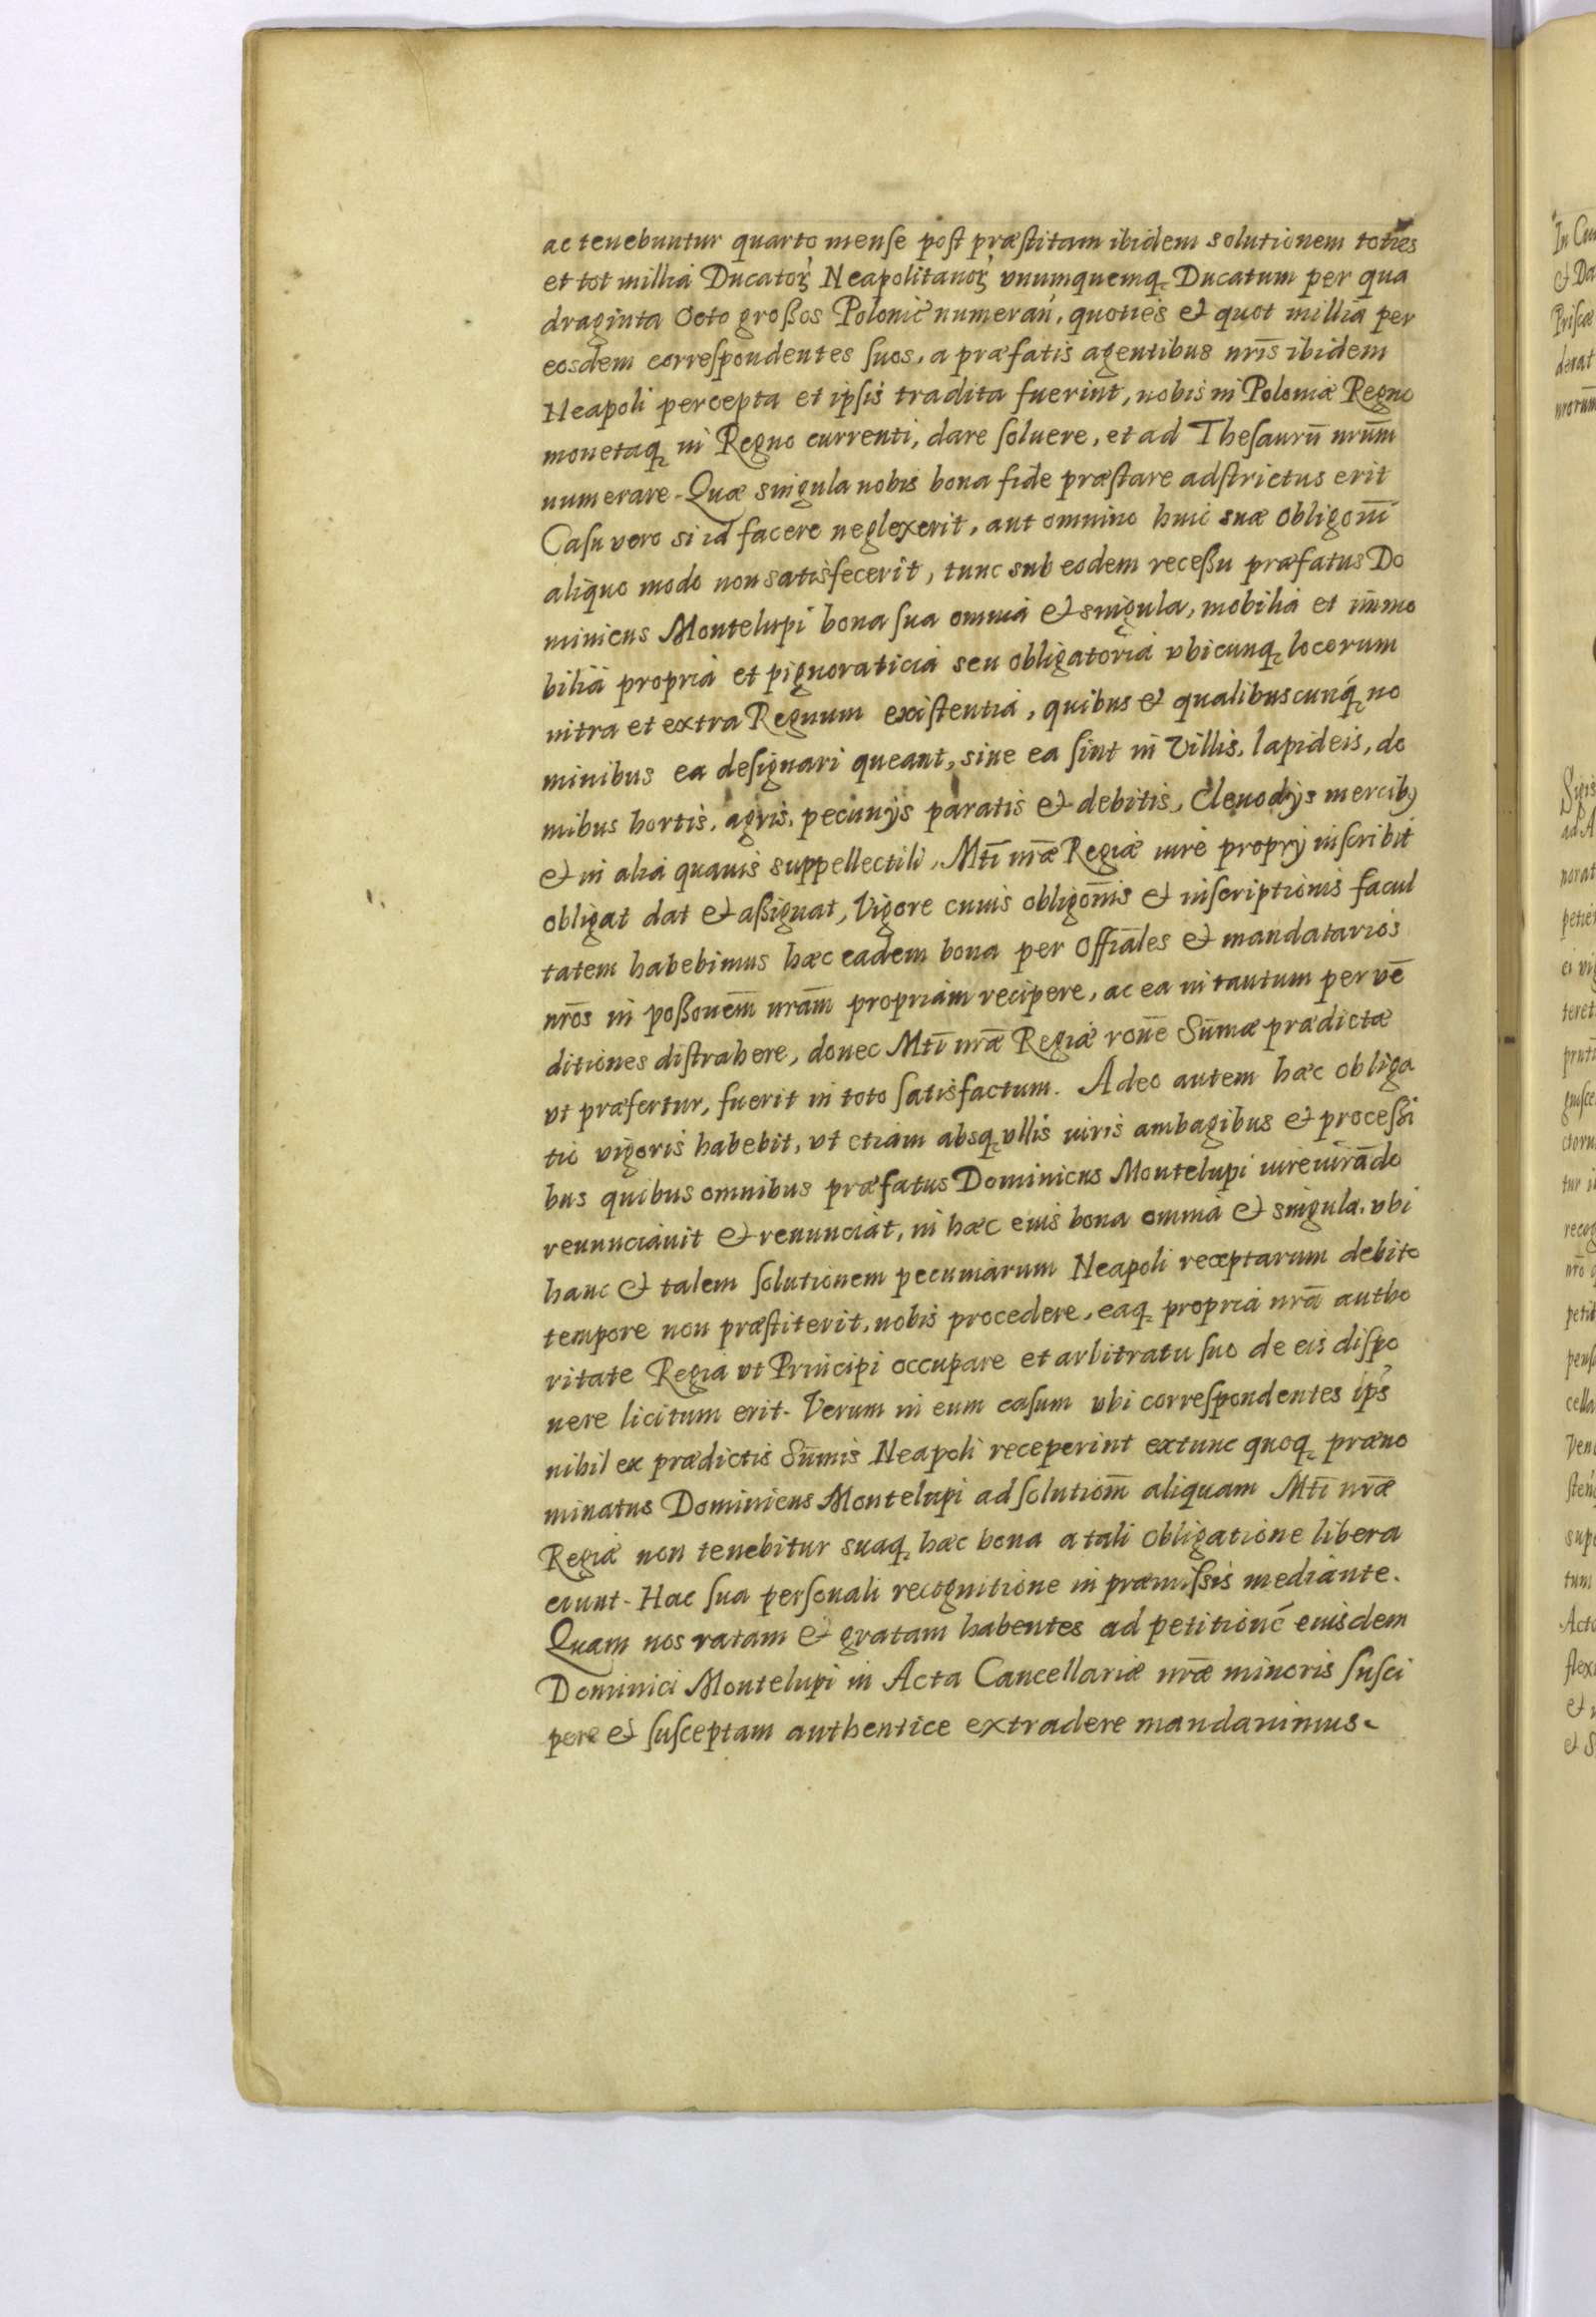 ac tenebuntur quarto mense post præstitam ibidem solutionem toties
et tot millia Ducatoꝝ Neapolitanoꝝ vnumquemq₃ Ducatum per qua
draginta octo großos Polonic̄ numeran̄, quoties et quot millia per
eosdem correspondentes suos, a præfatis agentibus nr̄is ibidem
Neapoli percepta et ipsis tradita fuerint, nobis in Poloniæ Regno
monetaq₃ in Regno currenti, dare soluere, et ad Thesaurū nrūm
numerare. Quæ singula nobis bona fide præstare adstrictus erit
Casu vero si id facere neglexerit, aut omnino huic suæ obligoñi
aliquo modo non satisfecerit, tunc sub eodem receßu præfatus Do
minicus Montelupi bona sua omnia et singula, mobilia et im̄mo
bilia propria et pignoraticia seu obligatoria vbicunq₃ locorum
intra et extra Regnum existentia, quibus et qualibuscunq₃ no
minibus ea designari queant, siue ea sint in Villis, lapideis, do
mibus hortis, agris, pecunijs paratis et debitis, Clenodijs mercibꝰ
et in alia quauis suppellectili, Mtī nr̄æ Regiæ iure proprij inscribit
obligat dat et aßignat, Vigore cuius obligoñis et inscriptionis facul
tatem habebimus hæc eadem bona per Offiāles et mandatarios
nr̄os in poßoñem nrām propriam recipere, ac ea in tantum per vē
ditiones distrahere, donec Mtī nr̄æ Regiæ roñe Sum̄æ prædictæ
vt præfertur, fuerit in toto satisfactum. Adeo autem hæc obliga
tio vigoris habebit, vt etiam absq₃ vllis iuris ambagibus et proceßi
bus quibus omnibus præfatus Dominicus Montelupi iureiurādo
renunciauit et renunciat, in hæc eius bona omnia et singula, vbi
hanc et talem solutionem pecuniarum Neapoli receptarum debito
tempore non præstiterit, nobis procedere, eaq₃ propria nrā autho
ritate Regia vt Principi occupare et arbitratu suo de eis dispo
nere licitum erit. Verum in eum casum vbi correspondentes ip̄s
nihil ex prædictis Sum̄is Neapoli receperint extunc quoq₃ præno
minatus Dominicus Montelupi ad solutiom̄ aliquam Mtī nr̄æ
Regiæ non tenebitur suaq₃ hæc bona a tali obligatione libera
erunt. Hac sua personali recognitione in præmissis mediante.
Quam nos ratam et gratam habentes ad petitionē eiusdem
Dominici Montelupi in Acta Cancellariæ nr̄æ minoris susci
pere et susceptam authentice extradere mandauimus.